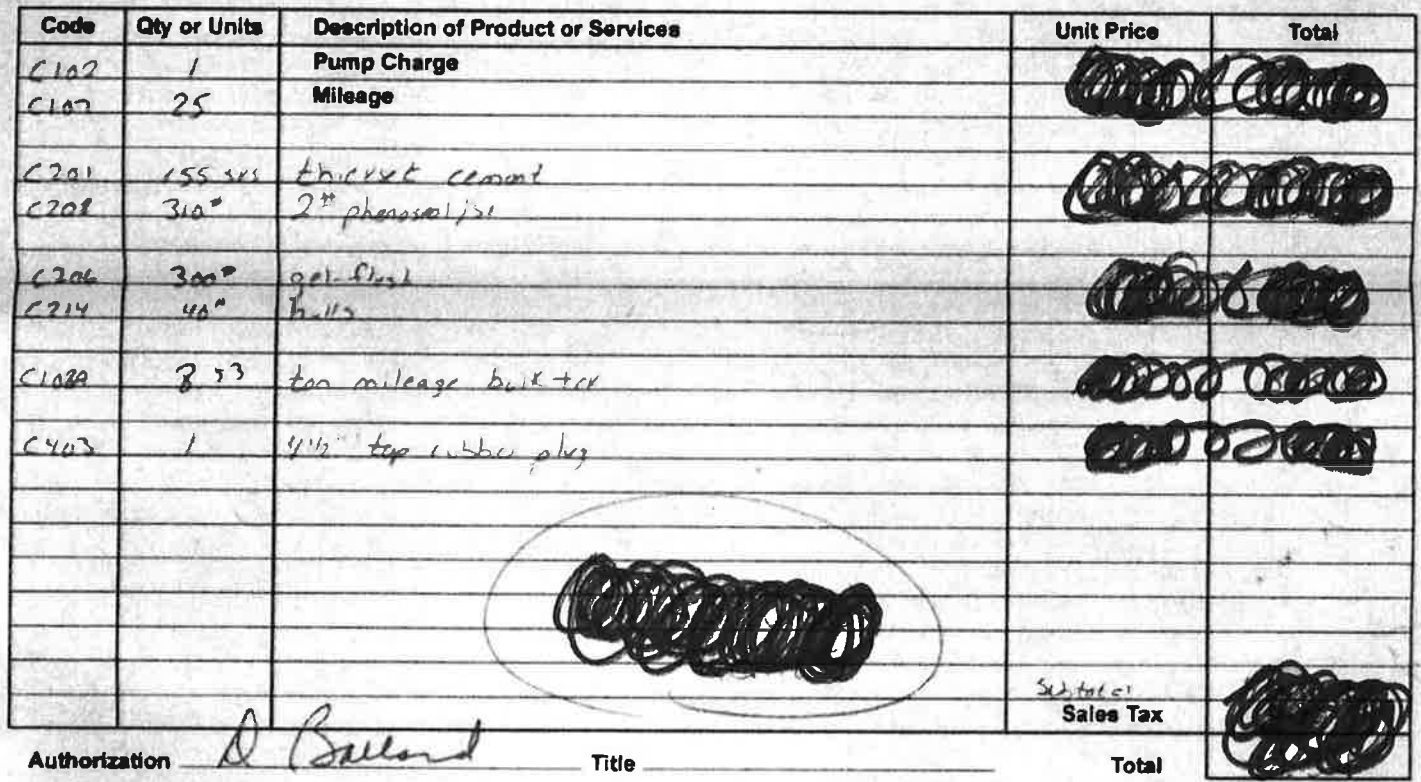 Code Qty or Units Description of Product or Services Unit Price Total
C102 1 Pump Charge
C107 25 Mileage
C201 155 sks thickset cement
C208 310# 2# phenoseal/sk
C206 300# gel-flush
C214 40# hulls
C108A 8.53 ton mileage bulk trk
C403 1 4½" top rubber plug
Subtotal
Sales Tax
Authorization D Ballard Title Total